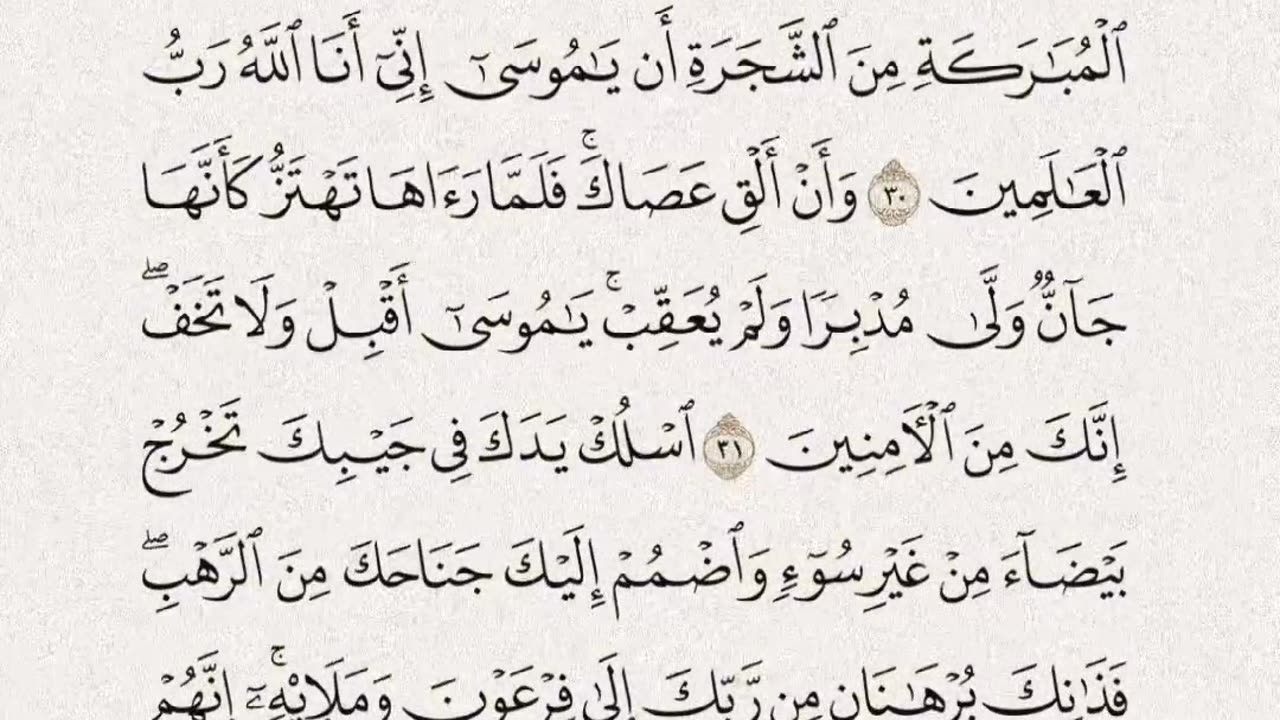 ٱلۡمُبَٰرَكَةِ مِنَ ٱلشَّجَرَةِ أَن يَٰمُوسَىٰٓ إِنِّيٓ أَنَا ٱللَّهُ رَبُّ
ٱلۡعَٰلَمِينَ ٣٠ وَأَنۡ أَلۡقِ عَصَاكَۚ فَلَمَّا رَءَاهَا تَهۡتَزُّ كَأَنَّهَا
جَآنّٞ وَلَّىٰ مُدۡبِرٗا وَلَمۡ يُعَقِّبۡۚ يَٰمُوسَىٰٓ أَقۡبِلۡ وَلَا تَخَفۡۖ
إِنَّكَ مِنَ ٱلۡأٓمِنِينَ ٣١ ٱسۡلُكۡ يَدَكَ فِي جَيۡبِكَ تَخۡرُجۡ
بَيۡضَآءَ مِنۡ غَيۡرِ سُوٓءٖ وَٱضۡمُمۡ إِلَيۡكَ جَنَاحَكَ مِنَ ٱلرَّهۡبِۖ
فَذَٰنِكَ بُرۡهَٰنَانِ مِن رَّبِّكَ إِلَىٰ فِرۡعَوۡنَ وَمَلَإِيْهِۦٓۚ إِنَّهُمۡ